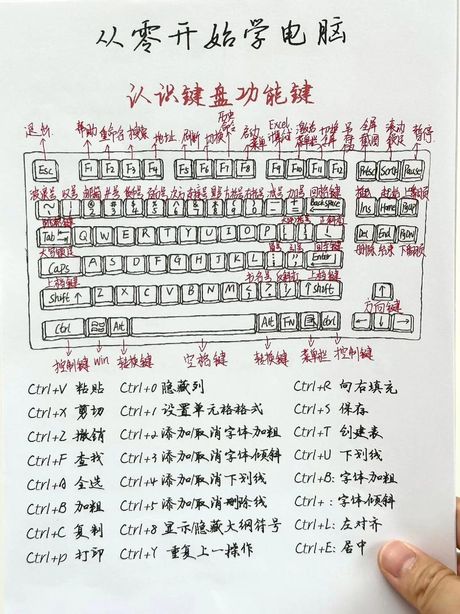 从零开始学电脑
认识键盘功能键
退出 帮助 重命名 搜索 地址 刷新 切换 启动菜单 Excel 另存 全屏截图 滚动 暂停
Esc F1 F2 F3 F4 F5 F6 F7 F8 F9 F10 F11 F12 Prtsc Scrl Pause
Backspace Ins Home PgUp
Tab Q W E R T Y U I O P Del End PgDN
删除 结束 下翻页
Caps A S D F G H J K L Enter
上档键 上档键
Shift ↑ Z X C V B N M ↑ Shift ↑
方向键
Ctrl Alt Alt FN Ctrl ← ↓ →
控制键 Win 转换键 空格键 转换键 菜单栏 控制键
Ctrl+V 粘贴 Ctrl+0 隐藏列 Ctrl+R 向右填充
Ctrl+X 剪切 Ctrl+1 设置单元格格式 Ctrl+S 保存
Ctrl+Z 撤销 Ctrl+2 添加/取消字体加粗 Ctrl+T 创建表
Ctrl+F 查找 Ctrl+3 添加/取消字体倾斜 Ctrl+U 下划线
Ctrl+A 全选 Ctrl+4 添加/取消下划线 Ctrl+B: 字体加粗
Ctrl+B 加粗 Ctrl+5 添加/取消删除线 Ctrl+ : 字体倾斜
Ctrl+C 复制 Ctrl+8 显示/隐藏大纲符号 Ctrl+L: 左对齐
Ctrl+p 打印 Ctrl+Y 重复上一操作 Ctrl+E: 居中